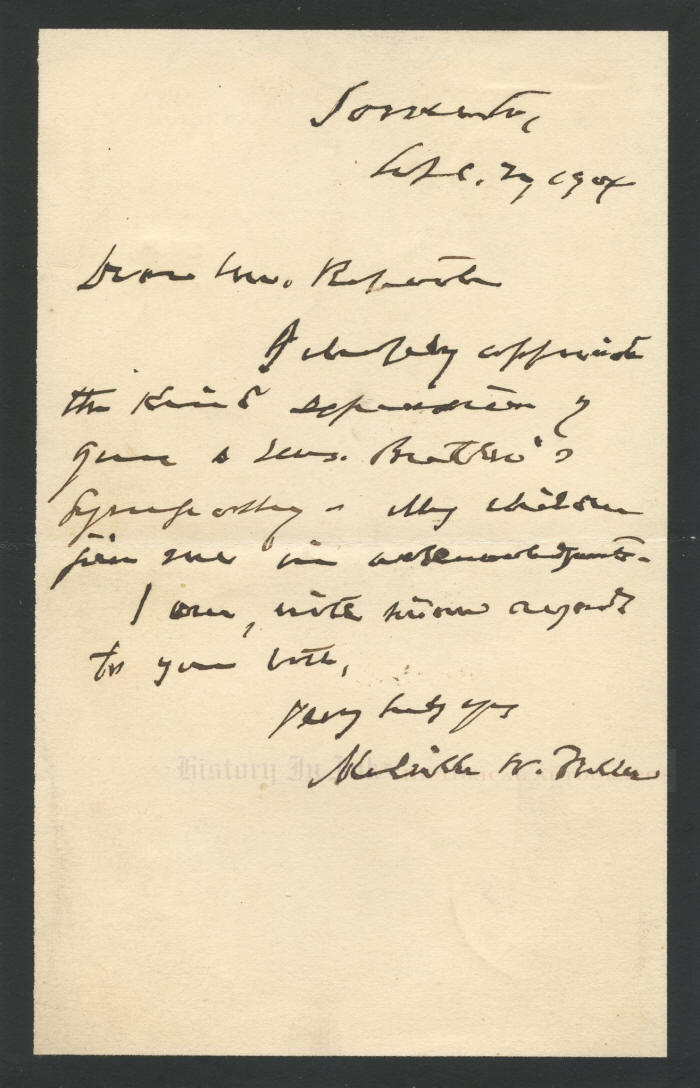 Sorrento,
Sept. 27 1904
Dear Mr.
I deeply appreciate
the kind expression of
your & Mrs.
sympathy - My children
join me in acknowledgment -
I am, with kind regards
to you both,
Very truly yrs
Melville W. Fuller
History In